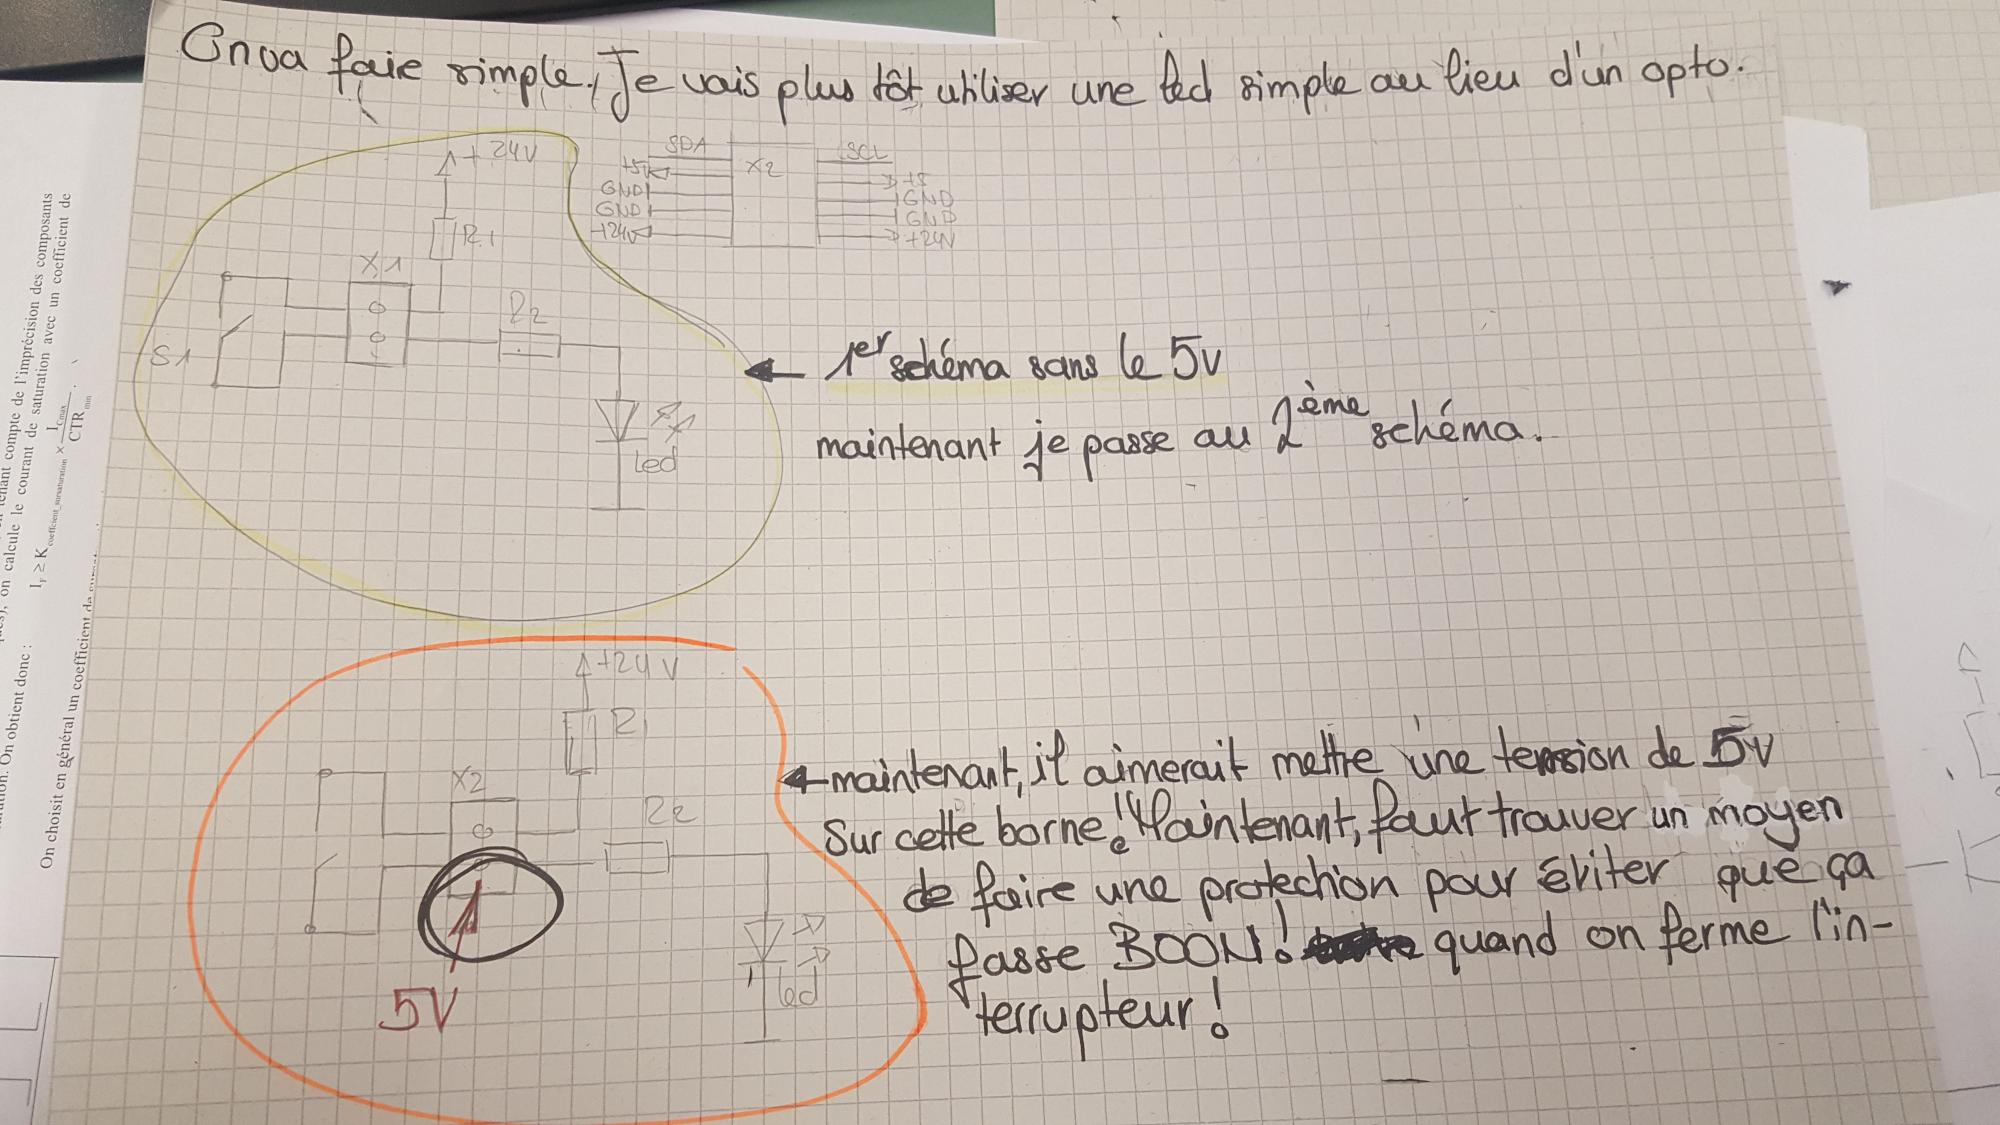 On va faie simple. Je vais plus tôt utiliser une led simple au lieu d'un opto.
+24V
SDA
X2
SCL
+5V
+5
GND
GND
GND
GND
+24V
+24V
R1
X1
R2
S1
led
1er schéma sans le 5V
maintenant je passe au 2ème schéma.
+24V
R1
X2
R2
led
5V
maintenant, il aimerait mettre une tension de 5V
Sur cette borne. Maintenant, faut trouver un moyen
de faire une protection pour éviter que ça
fasse BOON! quand on ferme l'in-
terrupteur!
tenant compte de l'imprécision des composants
on calcule le courant de saturation avec un coefficient de
On obtient donc :
I_F ≥ K_coefficient_sursaturation × I_Cmax / CTR_min
On choisit en général un coefficient de